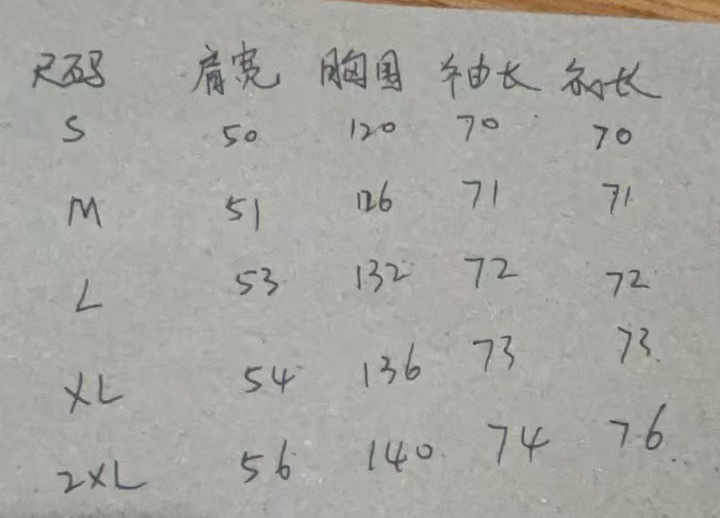 尺码 肩宽 胸围 袖长 衣长
S 50 120 70 70
M 51 126 71 71
L 53 132 72 72
XL 54 136 73 73
2XL 56 140 74 76